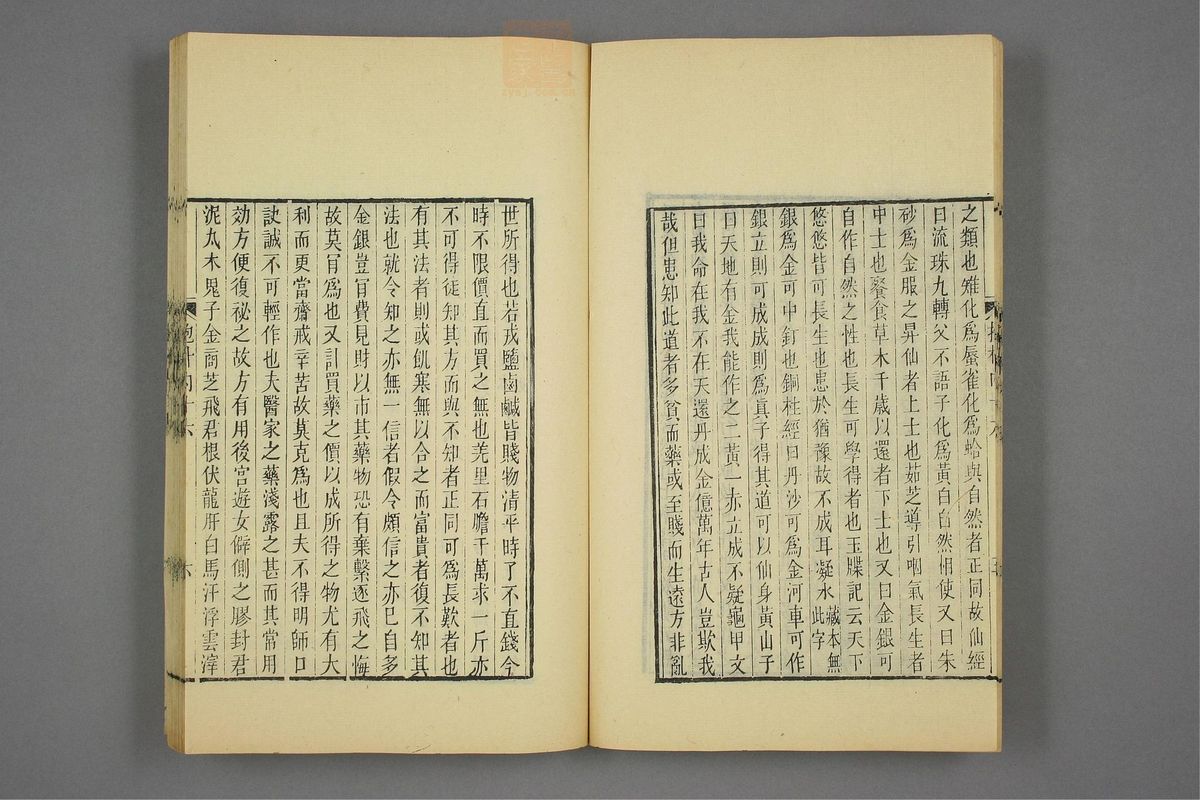 之類也雉化為蜃雀化為蛤與自然者正同故仙經
曰流珠九轉父不語子化為黃白自然相使又曰朱
砂為金服之昇仙者上士也茹芝導引咽氣長生者
中士也餐食草木千歲以還者下士也又曰金銀可
自作自然之性也長生可學得者也玉牒記云天下
悠悠皆可長生也患於猶豫故不成耳凝水 藏本無此字
銀為金可中釘也銅柱經曰丹沙可為金河車可作
銀立則可成成則為真子得其道可以仙身黃山子
曰天地有金我能作之二黃一赤立成不疑龜甲文
曰我命在我不在天還丹成金億萬年古人豈欺我
哉但患知此道者多貧而藥或至賤而生遠方非亂
世所得也若戎鹽鹵鹹皆賤物清平時了不直錢今
時不限價直而買之無也羌里石膽千萬求一斤亦
不可得徒知其方而與不知者正同可為長歎者也
有其法者則或飢寒無以合之而富貴者復不知其
法也就令知之亦無一信者假令頗信之亦已自多
金銀豈肎費見財以市其藥物恐有棄繫逐飛之悔
故莫肎為也又計買藥之價以成所得之物尤有大
利而更當齋戒辛苦故莫克為也且夫不得明師口
訣誠不可輕作也夫醫家之藥淺露之甚而其常用
効方便復祕之故方有用後宮遊女僻側之膠封君
泥丸木鬼子金商芝飛君根伏龍肝白馬汗浮雲滓
抱朴內十六
六